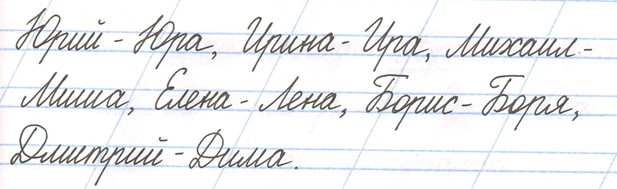 Юрий - Юра, Ирина - Ира, Михаил -
Миша, Елена - Лена, Борис - Боря,
Дмитрий - Дима.